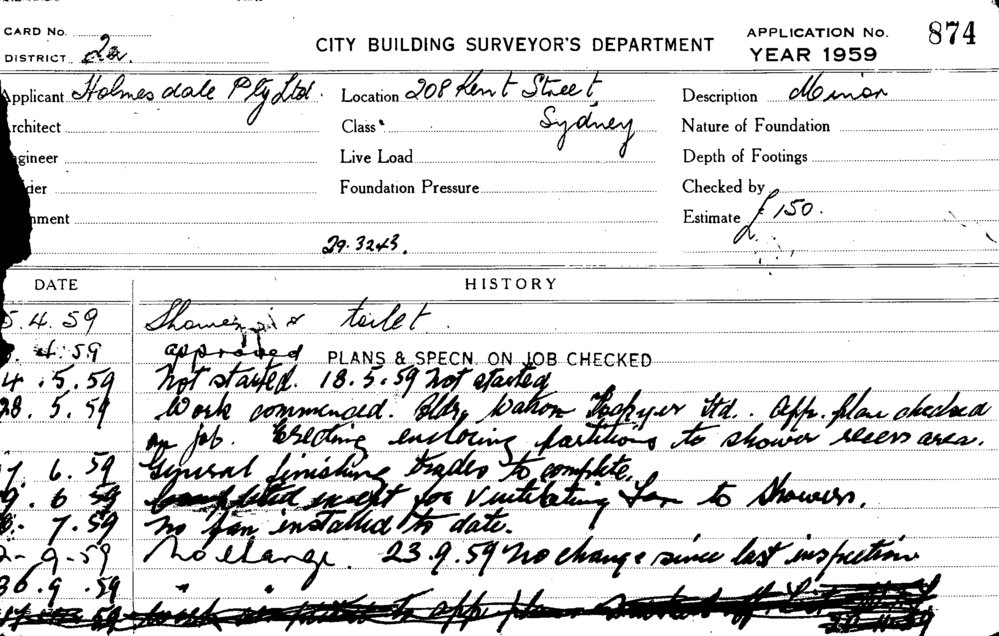 CARD No.
DISTRICT 2a
CITY BUILDING SURVEYOR'S DEPARTMENT
APPLICATION No. 874
YEAR 1959
Applicant Holmesdale Pty Ltd. Location 208 Kent Street Description Minor
rchitect Class Sydney Nature of Foundation
gineer Live Load Depth of Footings
der Foundation Pressure Checked by
nment Estimate £150.
29.3243.
DATE HISTORY
5.4.59 Shower toilet
4.59 approved PLANS & SPECN. ON JOB CHECKED
4.5.59 Not started. 18.5.59 Not started
28.5.59 Work commenced. Bldr. Ltd. App. plan checked
on job. Erecting enclosing partitions to shower recess area.
7.6.59 General finishing trades to complete.
9.6.59 Completed except for Ventilating Fan to Showers.
7.59 No fan installed to date.
2-9-59 No change. 23.9.59 No change since last inspection
30.9.59 " "
59 Work to app. plan. off List